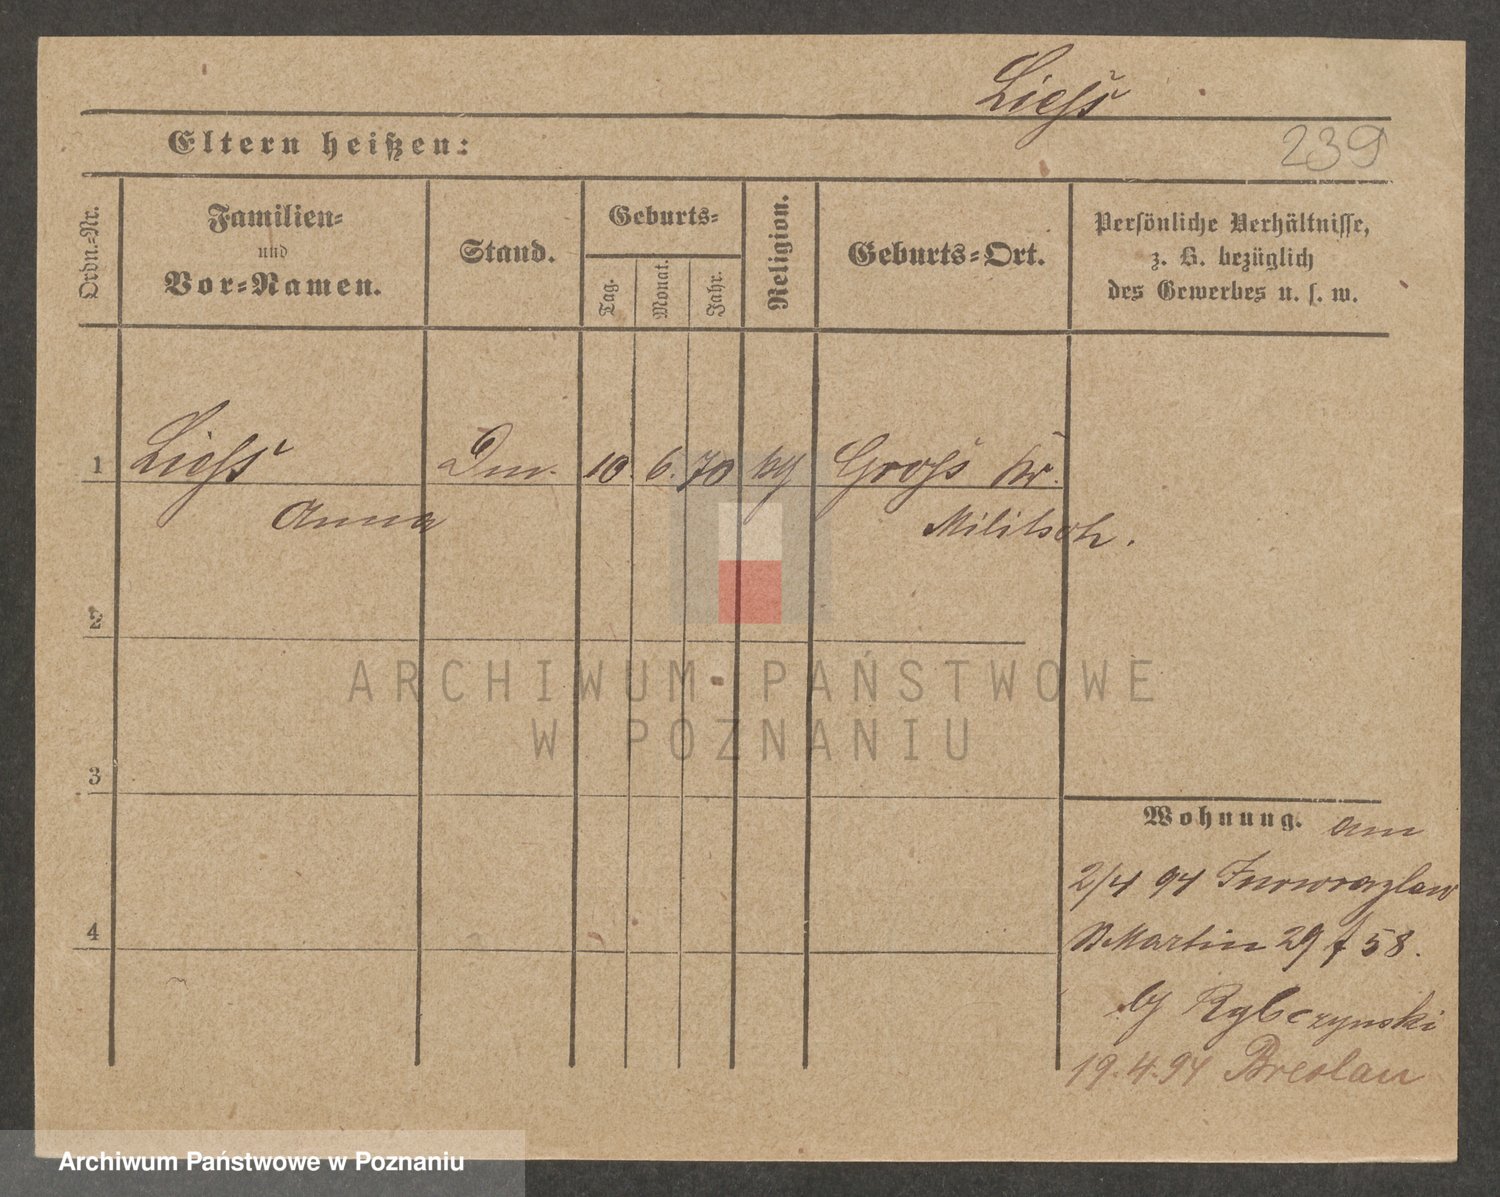 Ließ
239
Eltern heißen:
Ordn.-Nr.
Familien-
und
Vor-Namen.
Stand.
Geburts-
Tag.
Monat.
Jahr.
Religion.
Geburts-Ort.
Persönliche Verhältnisse,
z. B. bezüglich
des Gewerbes u. s. w.
1 Ließ 10. 6. 70 Groß Kr.
Anna Militsch.
2
3
4
ARCHIWUM PAŃSTWOWE
W POZNANIU
Wohnung. am
2/4 94 Inowrazlaw
St Martin 29 f 58.
Rybczynski
19.4.94 Breslau
Archiwum Państwowe w Poznaniu